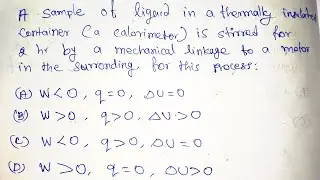 A sample of liquid in a thermally insulated
container (a calorimeter) is stirred for
2 hr by a mechanical linkage to a motor
in the surronding for this process:
(A) W<0, q=0, ΔU=0
(B) W>0, q>0, ΔU>0
(C) W<0, q>0, ΔU=0
(D) W>0, q=0, ΔU>0